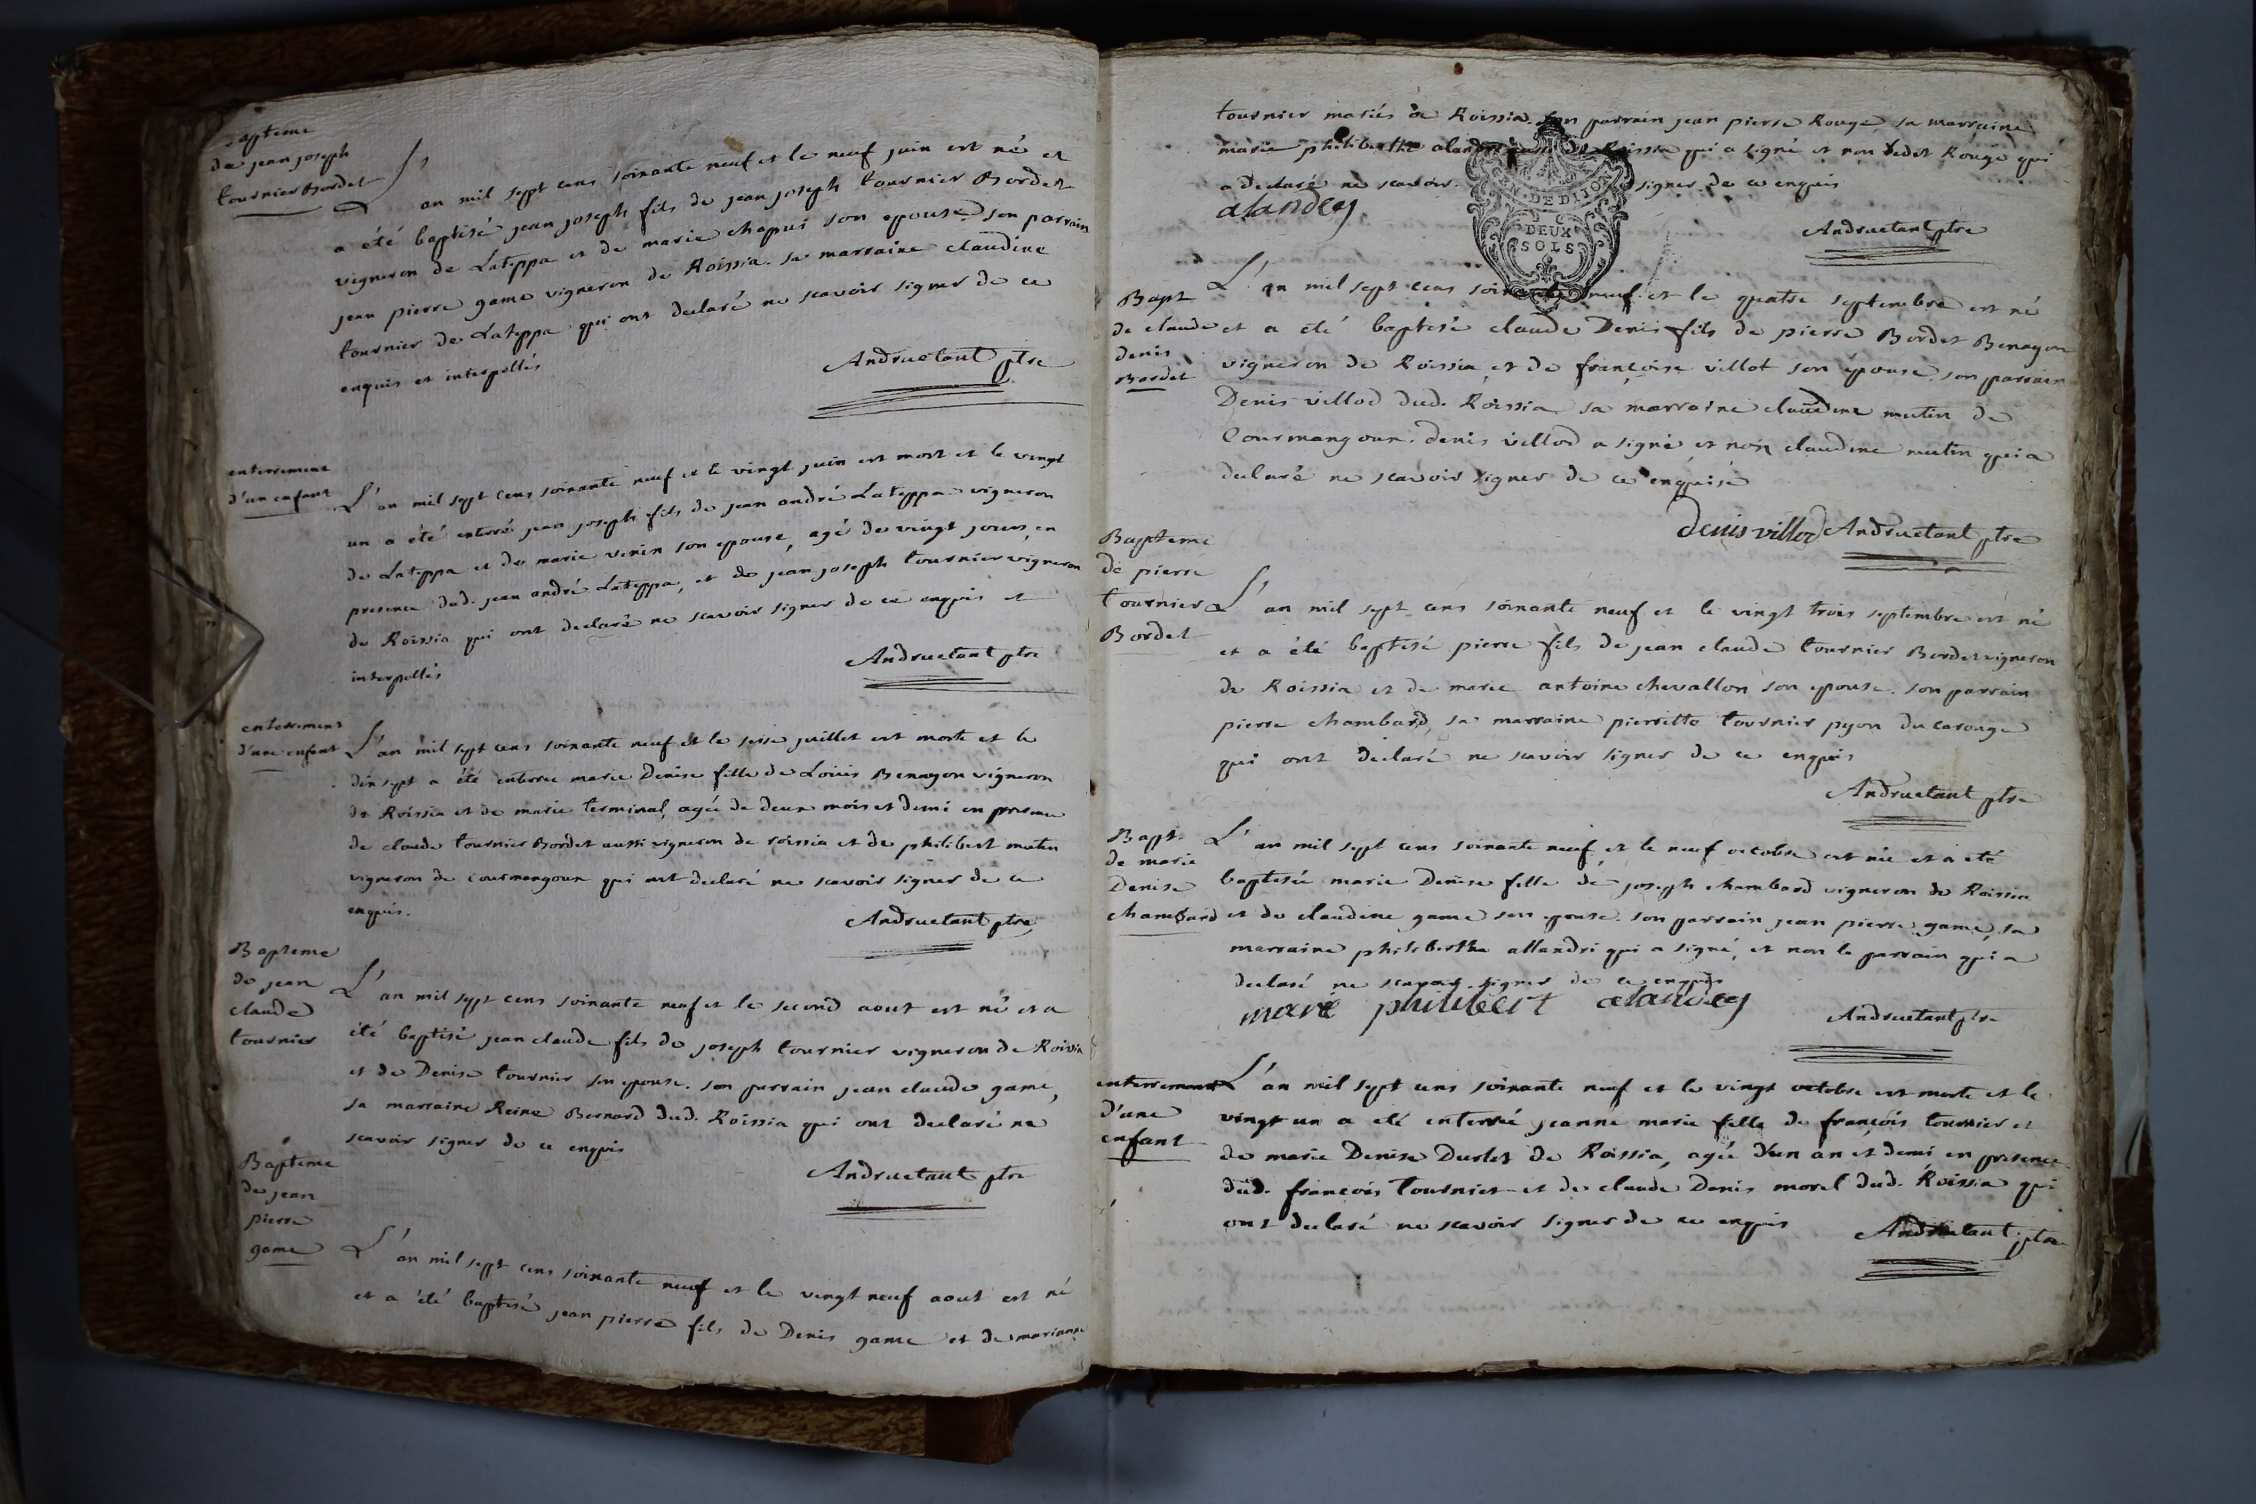 Bapteme
de jean joseph
tournier Bordet
L'an mil sept cens soixante neuf et le neuf juin est né et
a été baptisé jean joseph fils de jean joseph tournier Bordet
vigneron de Lateppa et de marie chapui son epouse son parrain
jean pierre game vigneron de Roissia. sa marraine claudine
tournier de Lateppa qui ont declaré ne scavoir signer de ce
enquis et interpellés
Andruetant ptre
enterrement
d'un enfant
L'an mil sept cens soixante neuf et le vingt juin est mort et le vingt
un a été enterré jean joseph fils de jean andré Lateppa vigneron
de Lateppa et de marie vinin son epouse, agé de vingt jours, en
presence dud. jean andré Lateppa, et de jean joseph tournier vigneron
de Roissia qui ont declaré ne scavoir signer de ce enquis et
interpellés
Andruetant ptre
enterrement
d'une enfant
L'an mil sept cens soixante neuf et le seise juillet est morte et le
dix sept a été enterree marie Denise fille de Louis Benayon vigneron
de Roissia et de marie terminal, agée de deux mois et demi en presence
de claude tournier Bordet aussi vigneron de roissia et de philibert mutin
vigneron de courmangoux qui ont declaré ne scavoir signer de ce
enquis.
Andruetant ptre
Bapteme
de jean
claude
tournier
L'an mil sept cens soixante neuf et le second aout est né et a
été baptisé jean claude fils de joseph tournier vigneron de Roissia
et de Denise tournier son epouse. son parrain jean claude game,
sa marraine Reine Bernard dud. Roissia qui ont declaré ne
scavoir signer de ce enquis
Andruetant ptre
Bapteme
de jean
pierre
game
L'an mil sept cens soixante neuf et le vingt neuf aout est né
et a été baptisé jean pierre fils de Denis game et de marianne
tournier mariés de Roissia. son parrain jean pierre Rouge, sa marraine
marie philiberthe alandri de Roissia qui a signé et non ledit Rouge qui
a declaré ne scavoir signer de ce enquis
GEN. DE DIJON
DEUX
SOLS
alandrey
Andruetant ptre
Bapt
de claude
denis
Bordet
L'an mil sept cens soixante neuf et le quatre septembre est né
et a été baptisé claude Denis fils de pierre Bordet Benayon
vigneron de Roissia, et de françoise villot son epouse. son parrain
Denis villod dud. Roissia sa marraine claudine mutin de
Courmangoux. denis villod a signé, et non claudine mutin qui a
declaré ne scavoir signer de ce enquise
denis villod Andruetant ptre
Bapteme
de pierre
tournier
Bordet
L'an mil sept cens soixante neuf et le vingt trois septembre est né
et a été baptisé pierre fils de jean claude tournier Bordet vigneron
de Roissia et de marie antoine chevallon son epouse. son parrain
pierre chambard, sa marraine pierrette tournier pyon du carouge
qui ont declaré ne scavoir signer de ce enquis
Andruetant ptre
Bapt.
de marie
Denise
chambard
L'an mil sept cens soixante neuf, et le neuf octobre est née et a été
baptisée marie Denise fille de joseph chambard vigneron de Roissia
et de claudine game son epouse. son parrain jean pierre game, sa
marraine philiberthe allandri qui a signé, et non le parrain qui a
declaré ne scavoir signer de ce enquis
marie philibert alandrey
Andruetant ptre
enterrement
d'une
enfant
L'an mil sept cens soixante neuf et le vingt octobre est morte et le
vingt un a été enterré jeanne marie fille de françois tournier et
de marie Denise Durlet de Roissia, agée d'un an et demi en presence
dud. françois tournier et de claude Denis morel dud. Roissia qui
ont declaré ne scavoir signer de ce enquis
Andruetant ptre